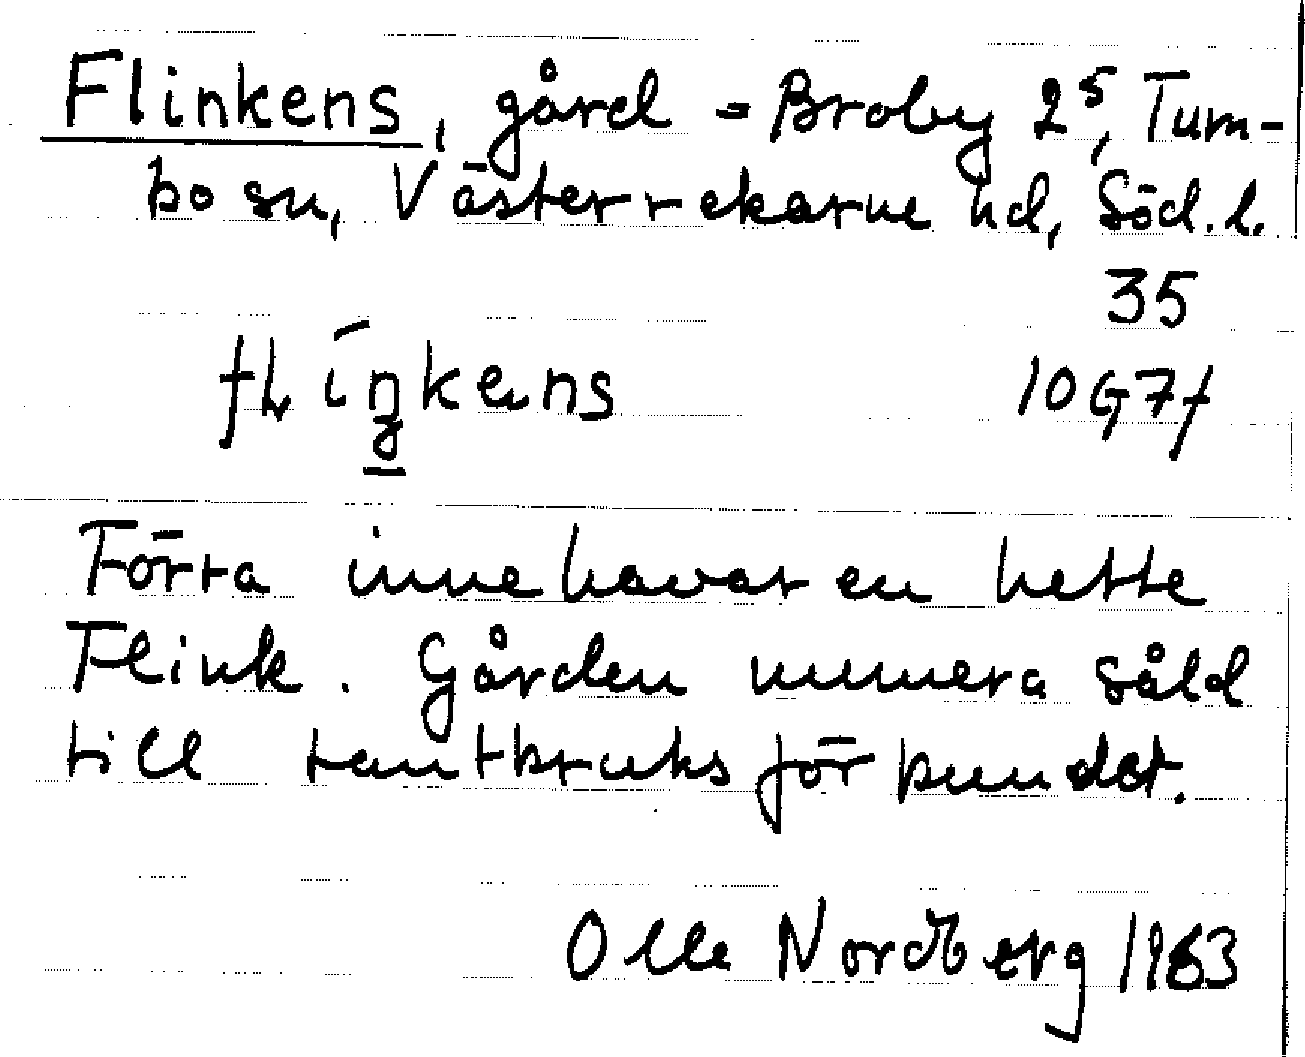 Flinkens, gård = Broby 2⁵, Tum-
bo sn, Västerrekarne hd, Söd. l.
35
flīŋkens 10G7f
Förra innehavaren hette
Flink. Gården numera såld
till lantbruksförbundet.
Olle Nordberg 1963